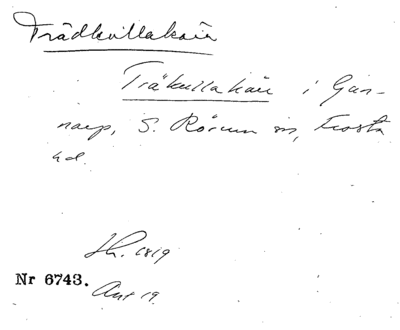 Trädkullakärr
Träkullakärr i Gun-
narp, S. Rörum sn, Frosta
hd.
1819
Nr 6743.
Ant 19.